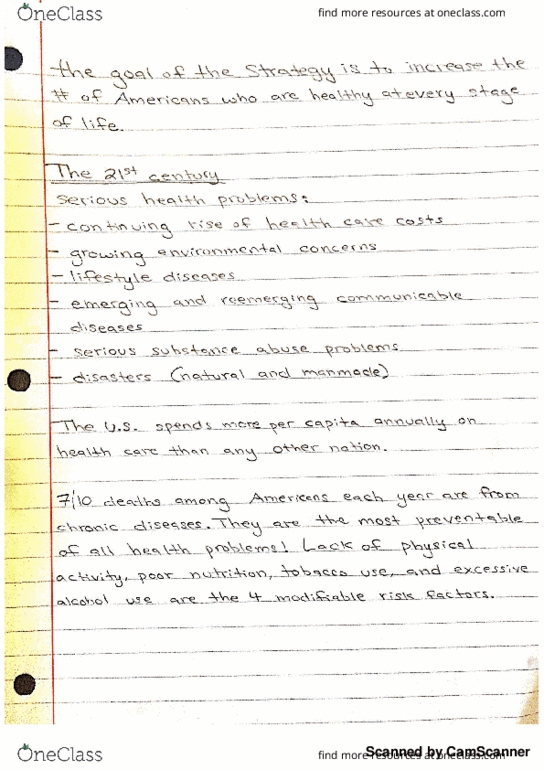 OneClass
find more resources at oneclass.com
the goal of the Strategy is to increase the
# of Americans who are healthy at every stage
of life.
The 21st century
serious health problems:
- continuing rise of health care costs
- growing environmental concerns
- lifestyle diseases
- emerging and reemerging communicable
diseases
- serious substance abuse problems
- disasters (natural and manmade)
The U.S. spends more per capita annually on
health care than any other nation.
7/10 deaths among Americans each year are from
chronic diseases. They are the most preventable
of all health problems! Lack of physical
activity, poor nutrition, tobacco use, and excessive
alcohol use are the 4 modifiable risk factors.
OneClass
find more resources at oneclass.com
Scanned by CamScanner